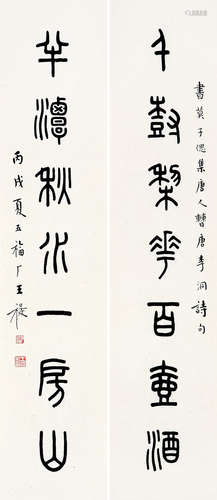 書莫子偲集唐人唐李洞詩句
千樹梨花百壺酒
半潭秋水一房山
丙戌夏五福厂王禔